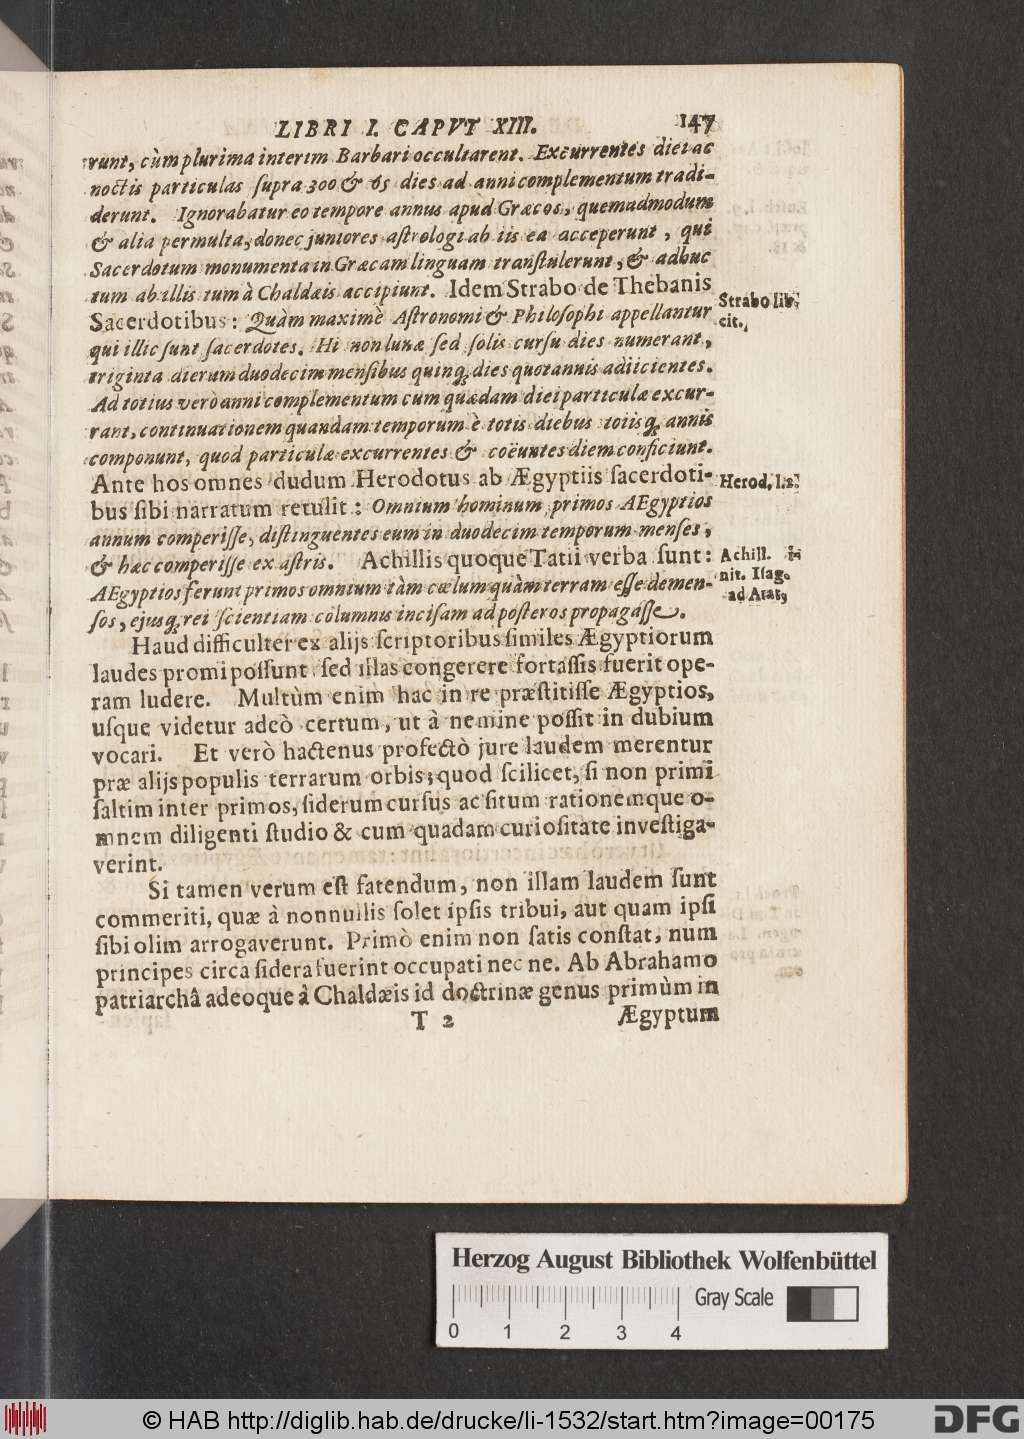 LIBRI I. CAPVT XIII. 147
runt, cùm plurima interim Barbari occultarent. Excurrentes diei ac
noctis particulas supra 300 & 65 dies ad anni complementum tradi-
derunt. Ignorabatur eo tempore annus apud Græcos, quemadmodum
& alia permulta, donec juniores astrologi ab iis ea acceperunt, qui
Sacerdotum monumenta in Græcam linguam transtulerunt, & adhuc
tum ab illis tum à Chaldæis accipiunt. Idem Strabo de Thebanis
Sacerdotibus: Quàm maximè Astronomi & Philosophi appellantur
qui illic sunt sacerdotes. Hi non lunæ sed solis cursu dies numerant,
triginta dierum duodecim mensibus quinq; dies quotannis adiicientes.
Ad totius verò anni complementum cum quædam diei particulæ excur-
rant, continuationem quandam temporum è totis diebus totiisq; annis
componunt, quod particulæ excurrentes & coëuntes diem conficiunt.
Ante hos omnes dudum Herodotus ab Ægyptiis sacerdoti-
bus sibi narratum retulit: Omnium hominum primos AEgyptios
annum comperisse, distinguentes eum in duodecim temporum menses,
& hæc comperisse ex astris. Achillis quoque Tatii verba sunt:
AEgyptios ferunt primos omnium tàm cælum quàm terram esse demen-
sos, ejusq; rei scientiam columnis incisam ad posteros propagasse.
Strabo lib.
cit.
Herod. l. 2.
Achill. in
nit. Isag.
ad Arat.
Haud difficulter ex alijs scriptoribus similes Ægyptiorum
laudes promi possunt sed illas congerere fortassis fuerit ope-
ram ludere. Multùm enim hac in re præstitisse Ægyptios,
usque videtur adeò certum, ut à nemine possit in dubium
vocari. Et verò hactenus profectò jure laudem merentur
præ alijs populis terrarum orbis; quod scilicet, si non primi
saltim inter primos, siderum cursus ac situm rationemque o-
mnem diligenti studio & cum quadam curiositate investiga-
verint.
Si tamen verum est fatendum, non illam laudem sunt
commeriti, quæ à nonnullis solet ipsis tribui, aut quam ipsi
sibi olim arrogaverunt. Primò enim non satis constat, num
principes circa sidera fuerint occupati nec ne. Ab Abrahamo
patriarchâ adeoque à Chaldæis id doctrinæ genus primùm in
T 2 Ægyptum
Herzog August Bibliothek Wolfenbüttel
Gray Scale
0 1 2 3 4
© HAB http://diglib.hab.de/drucke/li-1532/start.htm?image=00175
DFG